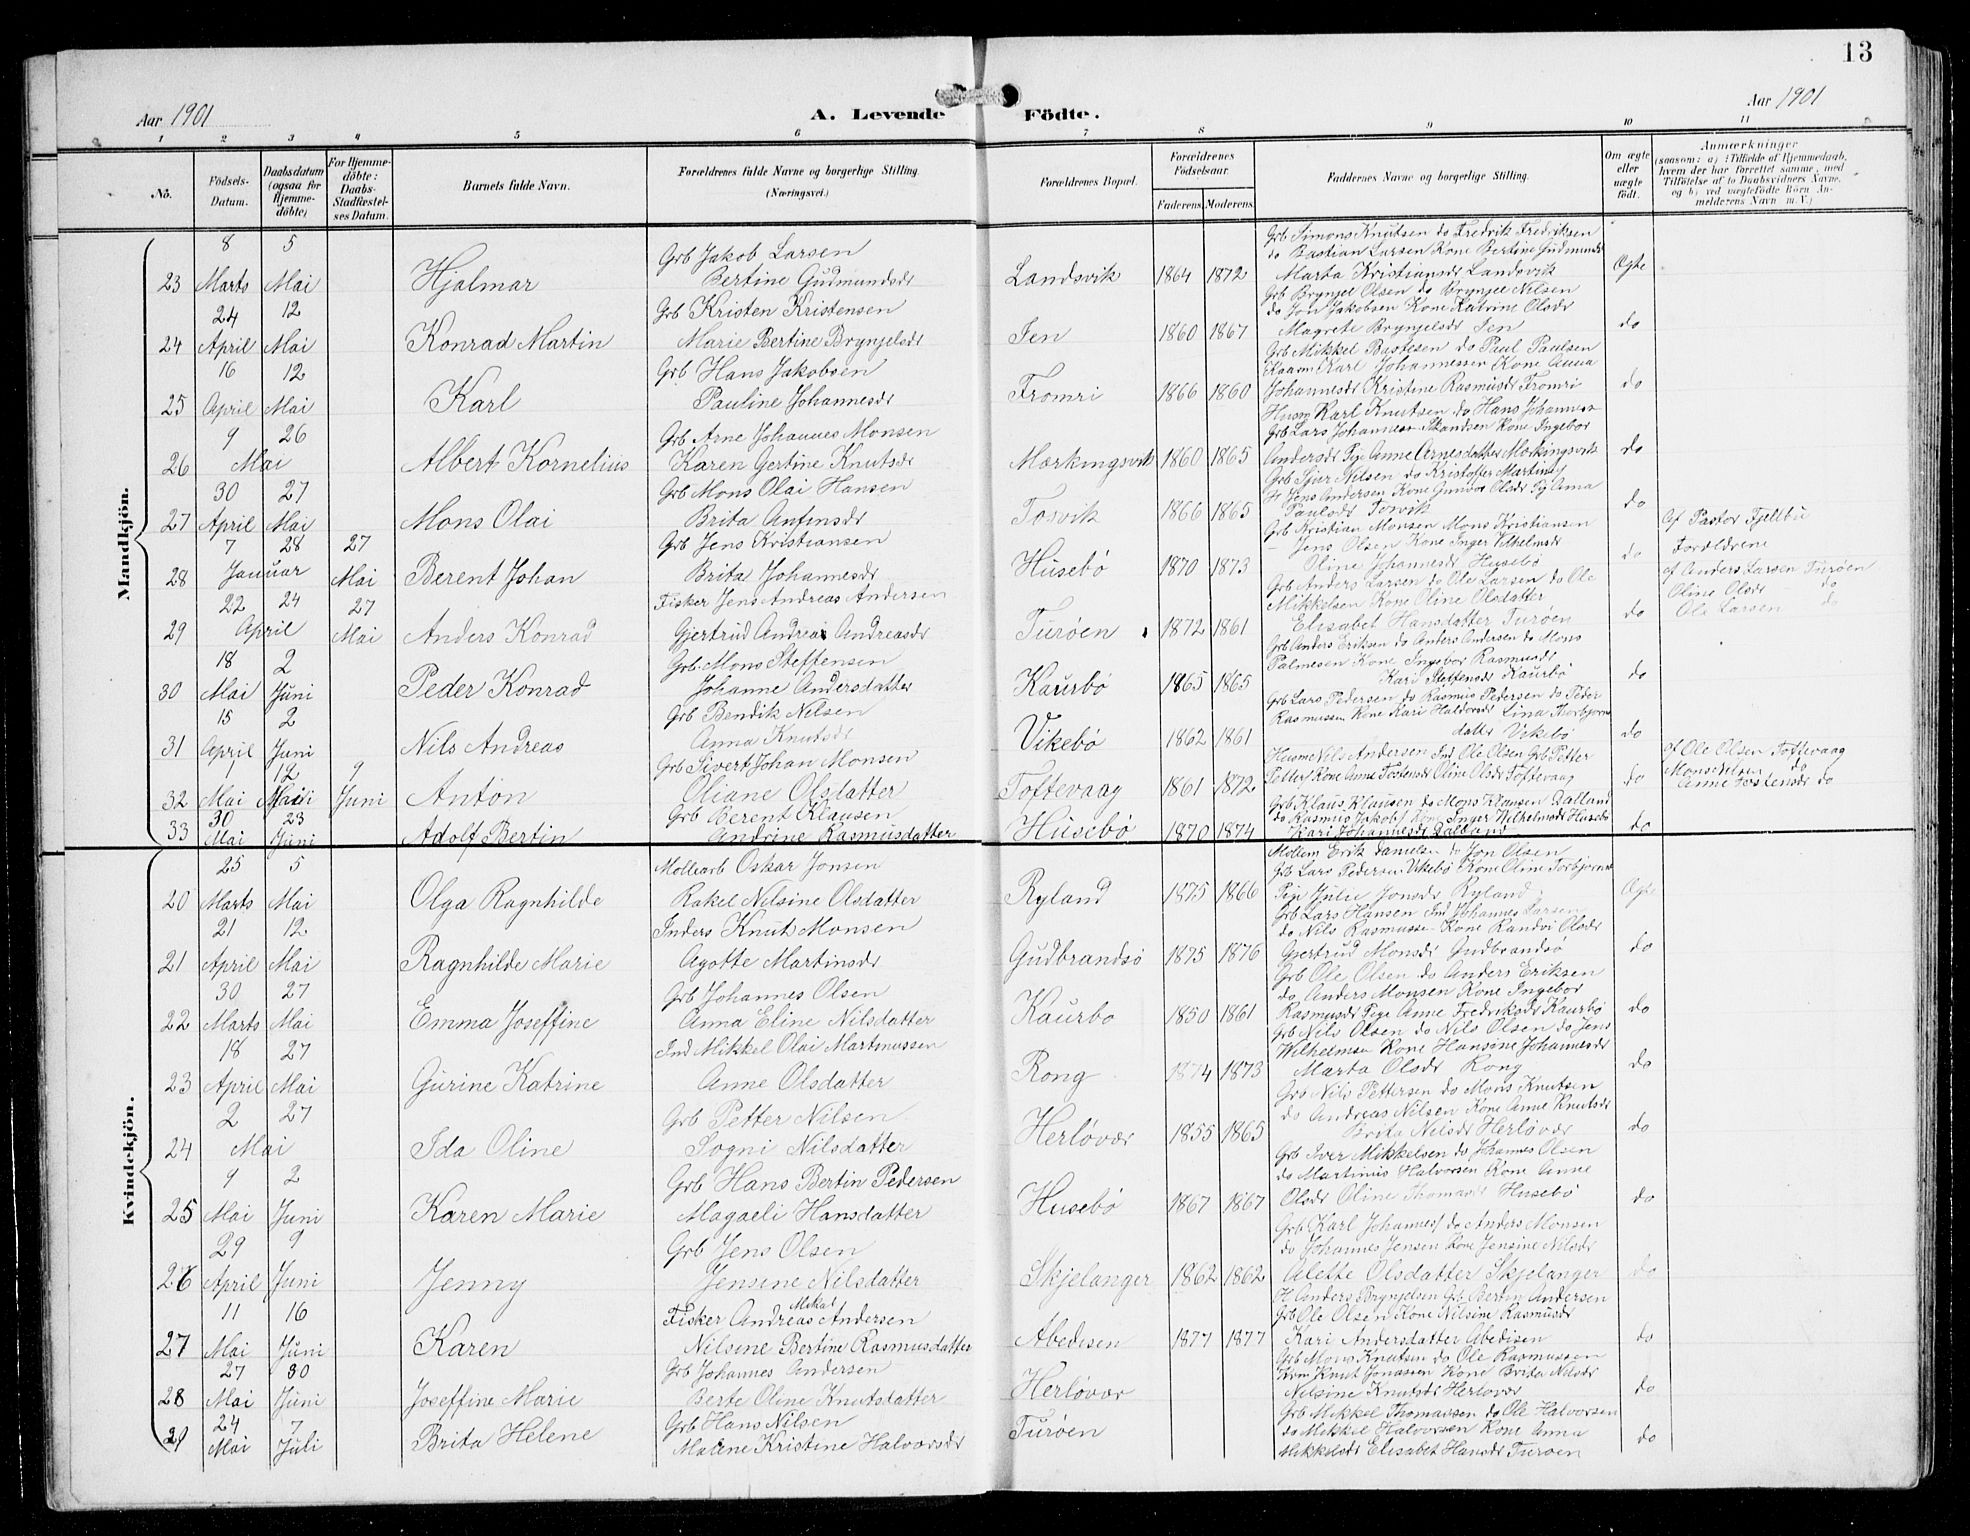 13
Aar 1901
A. Levende Födte.
Aar 1901
1 2 3 4 5 6 7 8 9 10 11
No.
Födsels-Datum.
Daabsdatum (ogsaa for Hjemme-döbte)
For Hjemme-döbte: Daabs-Stadfæstel-ses Datum.
Barnets fulde Navn.
Forældrenes fulde Navne og borgerlige Stilling. (Næringsvei.)
Forældrenes Bopæl.
Forældrenes Födselsaar.
Faderens Moderens
Faddernes Navne og borgerlige Stilling.
Om ægte eller uægte födt.
Anmærkninger
(saasom: a) i Tilfælde af Hjemmedaab, hvem der har forrettet samme, med Tilföielse af to Daabsvidners Navne, og b) ved uægtefödte Börn An-melderens Navn m.V.)
Mandkjön.
23 8 Marts 5 Mai Hjalmar Grb Jakob Larsen Bertine Gudmundsdr Landsvik 1864 1872 Grb Simons Knutsen do Fredrik Fredriksen
do Bastian Larsen Kone Bertine Gudmunds
Marta Kristiansdr Landsvik Ægte
24 24 April 12 Mai Konrad Martin Grb Kristen Kristensen Marie Bertine Brynjelsdr Jen 1860 1867 Grb Brynjel Olsen do Brynjel Nilsen
do Jon Jakobsen Kone Katrine Olsdr
Magrete Brynjelsdr Jen do
25 16 April 12 Mai Karl Grb Hans Jakobsen Pauline Johannesdr Fromri 1866 1860 Grb Mikkel Bastesen do Paul Paulsen
Karl Johannessen Kone Anna
Johannesdr Kristine Rasmusdr Fromri do
26 9 26 Mai Albert Kornelius Grb Arne Johannes Monsen Karen Gertine Knutsdr Morkingsvik 1860 1865 Husm Karl Knutsen do Hans Johannes
Grb Lars Johannes Kone Ingebor
Andersdr Pige Anne Arnesdatter Morkingsvik do
27 30 April 27 Mai Mons Olai Grb Mons Olai Hansen Brita Antinsdr Tosvik 1866 1865 Grb Sjur Nilsen do Kristoffer Martins
Jens Andersen Kone Gunvor Olsdr Pig Anna
Paulsdr Tosvik do
28 7 Januar 28 27 Mai Berent Johan Grb Jens Kristiansen Brita Johannesdr Husebø 1870 1873 Grb Kristian Monsen Mons Kristiansen
Jens Olsen Kone Inger Vilhelmsdr
Oline Johannesdr Husebø do Af Pastor Fjellbu
Foreldrene
29 22 24 April 27 Mai Anders Konrad Fisker Jens Andreas Andersen Gjertrud Andrea Andreasdr Turøen 1872 1861 Grb Anders Larsen do Ole Larsen do Ole
Mikkelsen Kone Oline Olsdatter
Elisabet Hansdatter Turøen do af Anders Larsen Turøen
Oline Olsdr do
Ole Larsen do
30 18 Mai 2 Juni Peder Konrad Grb Mons Steffensen Johanne Andersdatter Kaurbø 1865 1865 Grb Anders Eriksen do Anders Andersen do Mons
Palmesen Kone Ingebor Rasmusdr
Kari Steffensdr Kaurbø do
31 15 April 2 Juni Nils Andreas Grb Bendik Nilsen Anna Knutsdr Vikebø 1862 1861 Grb Lars Pedersen do Rasmus Pedersen do Peder
Rasmussen Kone Kari Haldorsdr Lina Thorbjorns
datter Vikebø do
32 1 Mai 12 Mai 9 Juni Anton Grb Sivert Johan Monsen Oliane Olsdatter Toftevaag 1861 1872 Husm Nils Andersen Ind Ole Olsen Grb Petter
Petters Kone Anne Tostensdr Oline Olsdr Toftevaag do af Ole Olsen Toftevaag
Mons Nilsen do
Anne Tostensdr do
33 30 Mai 23 Juni Adolf Bertin Grb Berent Klausen Andrine Rasmusdatter Husebø 1870 1874 Grb Klaus Klausen do Mons Klausen Dalland
do Rasmus Jakobs Kone Inger Wilhelmsdr Husebø
Kari Johannesdr Dalland do
Kvindekjön.
20 25 Marts 5 Mai Olga Ragnhilde Mollearb Oskar Jonsen Rakel Nilsine Olsdatter Ryland 1875 1866 Mollem Erik Danielsen do Jon Olsen
Grb Lars Pedersen Vikebø Kone Oline Torbjorns
Pige Julie Jonsdr Ryland Ægte
21 21 April 12 Mai Ragnhilde Marie Inders Knut Monsen Agotte Martinsdr Gudbrandsø 1875 1876 Grb Lars Hansen Ind Johannes Larsen
do Nils Rasmusse Kone Randvi Olsdr
Gjertrud Monsdr Gudbrandsø do
22 30 Marts 27 Mai Emma Joseffine Grb Johannes Olsen Anna Eline Nilsdatter Kaurbø 1850 1861 Grb Ole Olsen do Anders Eriksen
do Anders Monsen Kone Ingebor
Rasmusdr Pige Anne Fredriksdr Kaurbø do
23 18 April 27 Mai Gurine Katrine Ind Mikkel Olai Martinussen Anne Olsdatter Rong 1874 1873 Grb Nils Olsen do Nils Olsen do Jens
Wilhelmsen Kone Hansine Johannesdr
Marta Olsdr Rong do
24 2 27 Mai Ida Oline Grb Petter Nilsen Sogni Nilsdatter Herløvær 1855 1865 Grb Nils Pettersen do Mons Knutsen
do Andreas Nilsen Kone Anne Knutsdr
Brita Nilsdr Herløvær do
25 9 Mai 2 Juni Karen Marie Grb Hans Bertin Pedersen Magaeli Hansdatter Husebø 1867 1867 Grb Iver Mikkelsen do Johannes Olsen
do Martinus Halvorsen Kone Anne
Olsdr Oline Thomasdr Husebø do
26 29 April 9 Juni Jenny Grb Jens Olsen Jensine Nilsdatter Skjelanger 1862 1862 Grb Karl Johannes do Anders Monsen
do Johannes Jensen Kone Jensine Nilsdr
Alette Olsdatter Skjelanger do
27 11 Mai 16 Juni Karen Fisker Andreas Mikal Andersen Nilsine Bertine Rasmusdatter Abedisen 1877 1877 Anders Brynjelsen Grb Bertin Andersen
Grb Ole Olsen Kone Nilsine Rasmusdr
Kari Andersdatter Abedisen do
28 27 Mai 30 Juni Joseffine Marie Grb Johannes Andersen Berte Oline Knutsdatter Herløvær Grb Mons Knutsen do Ole Rasmussen
Knut Jonassen Kone Brita Nilsdr
Nilsine Knutsdr Herløvær do
29 24 Mai 7 Juli Brita Helene Grb Hans Nilsen Malene Kristine Halvorsdr Turøen Grb Mikkel Thomassen do Ole Halvorsen
do Mikkel Halvorsen Kone Anna
Mikkelsdr Elisabet Hansdr Turøen do